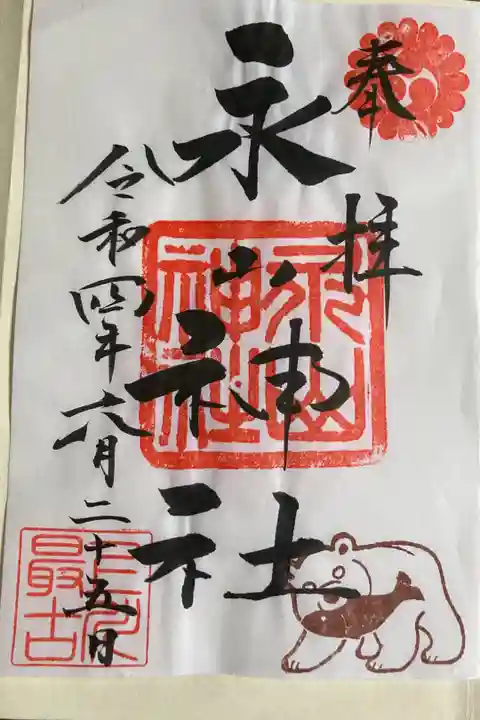 奉拝
永山神社
令和四年六月二十五日
永山
神社
最古